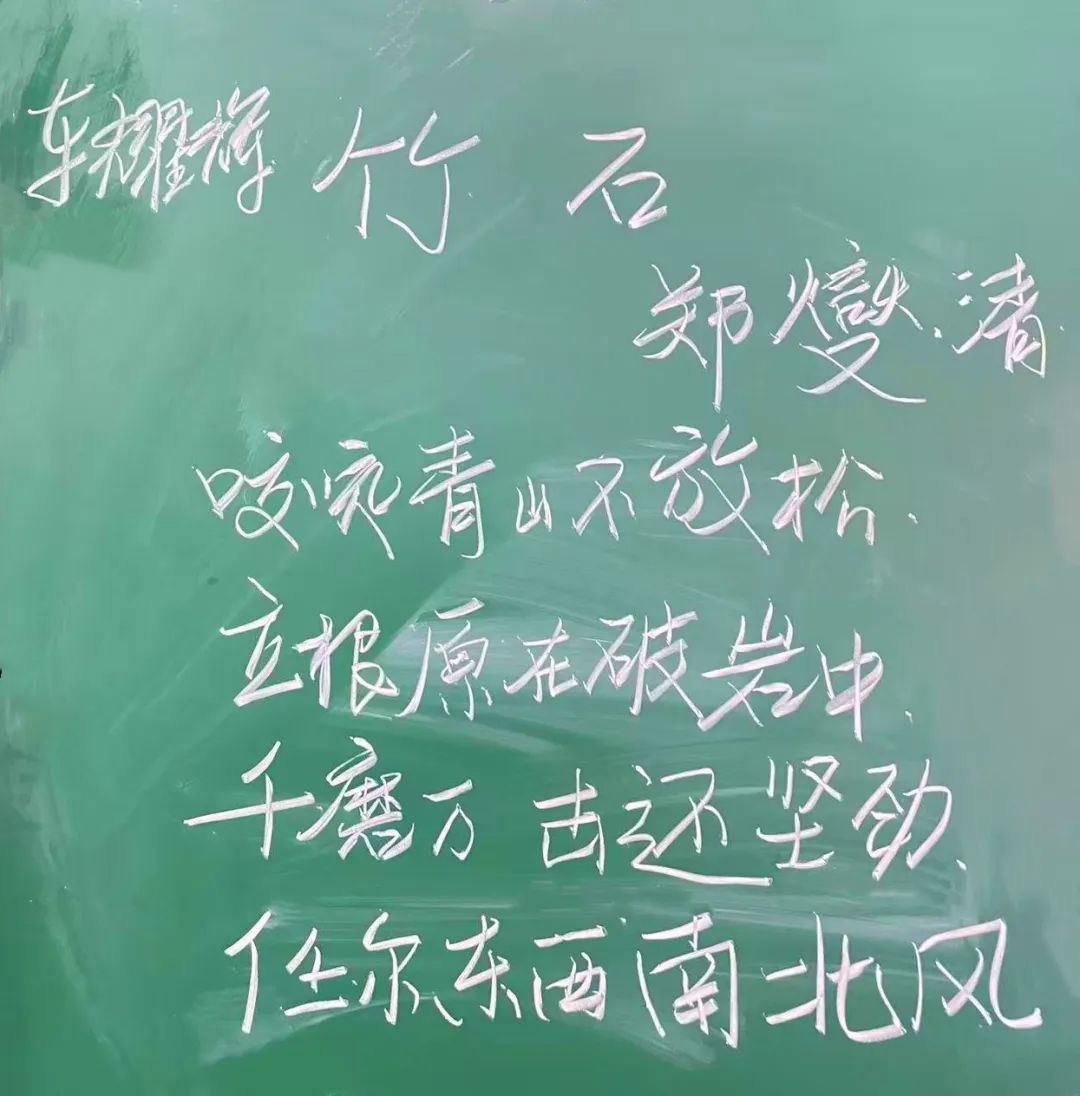 车耀辉 竹石
郑燮.清
咬定青山不放松.
立根原在破岩中.
千磨万击还坚劲.
任尔东西南北风